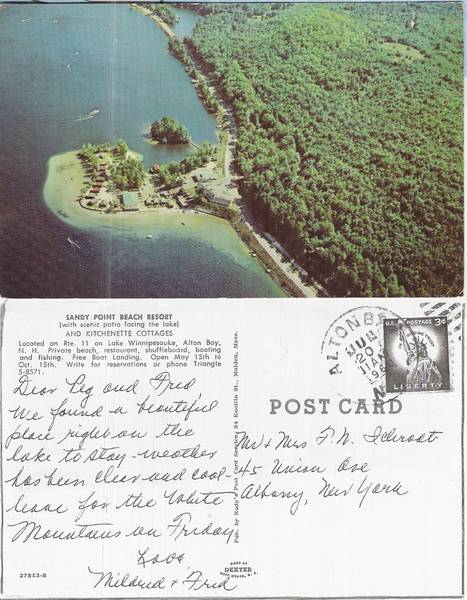 SANDY POINT BEACH RESORT
(with scenic patio facing the lake)
AND KITCHENETTE COTTAGES
Located on Rte. 11 on Lake Winnipesouke, Alton Bay,
N. H. Private beach, restaurant, shuffleboard, boating
and fishing. Free Boat Landing. Open May 15th to
Oct. 15th. Write for reservations or phone Triangle
5-8571.
Dear Peg and Fred,
We found a beautiful
place right on the
lake to stay - weather
has been clear and cool
leave for the White
Mountains on Friday
Love
Mildred & Fred
27513-B
MADE BY
DEXTER
Pub. by Rudy's Post Card Service, St., Malden, Mass.
ALTON BAY
20
U.S. POSTAGE 3¢
LIBERTY
POST CARD
Mr & Mrs F. W. Schrodt
45 Union Ave
Albany, New York